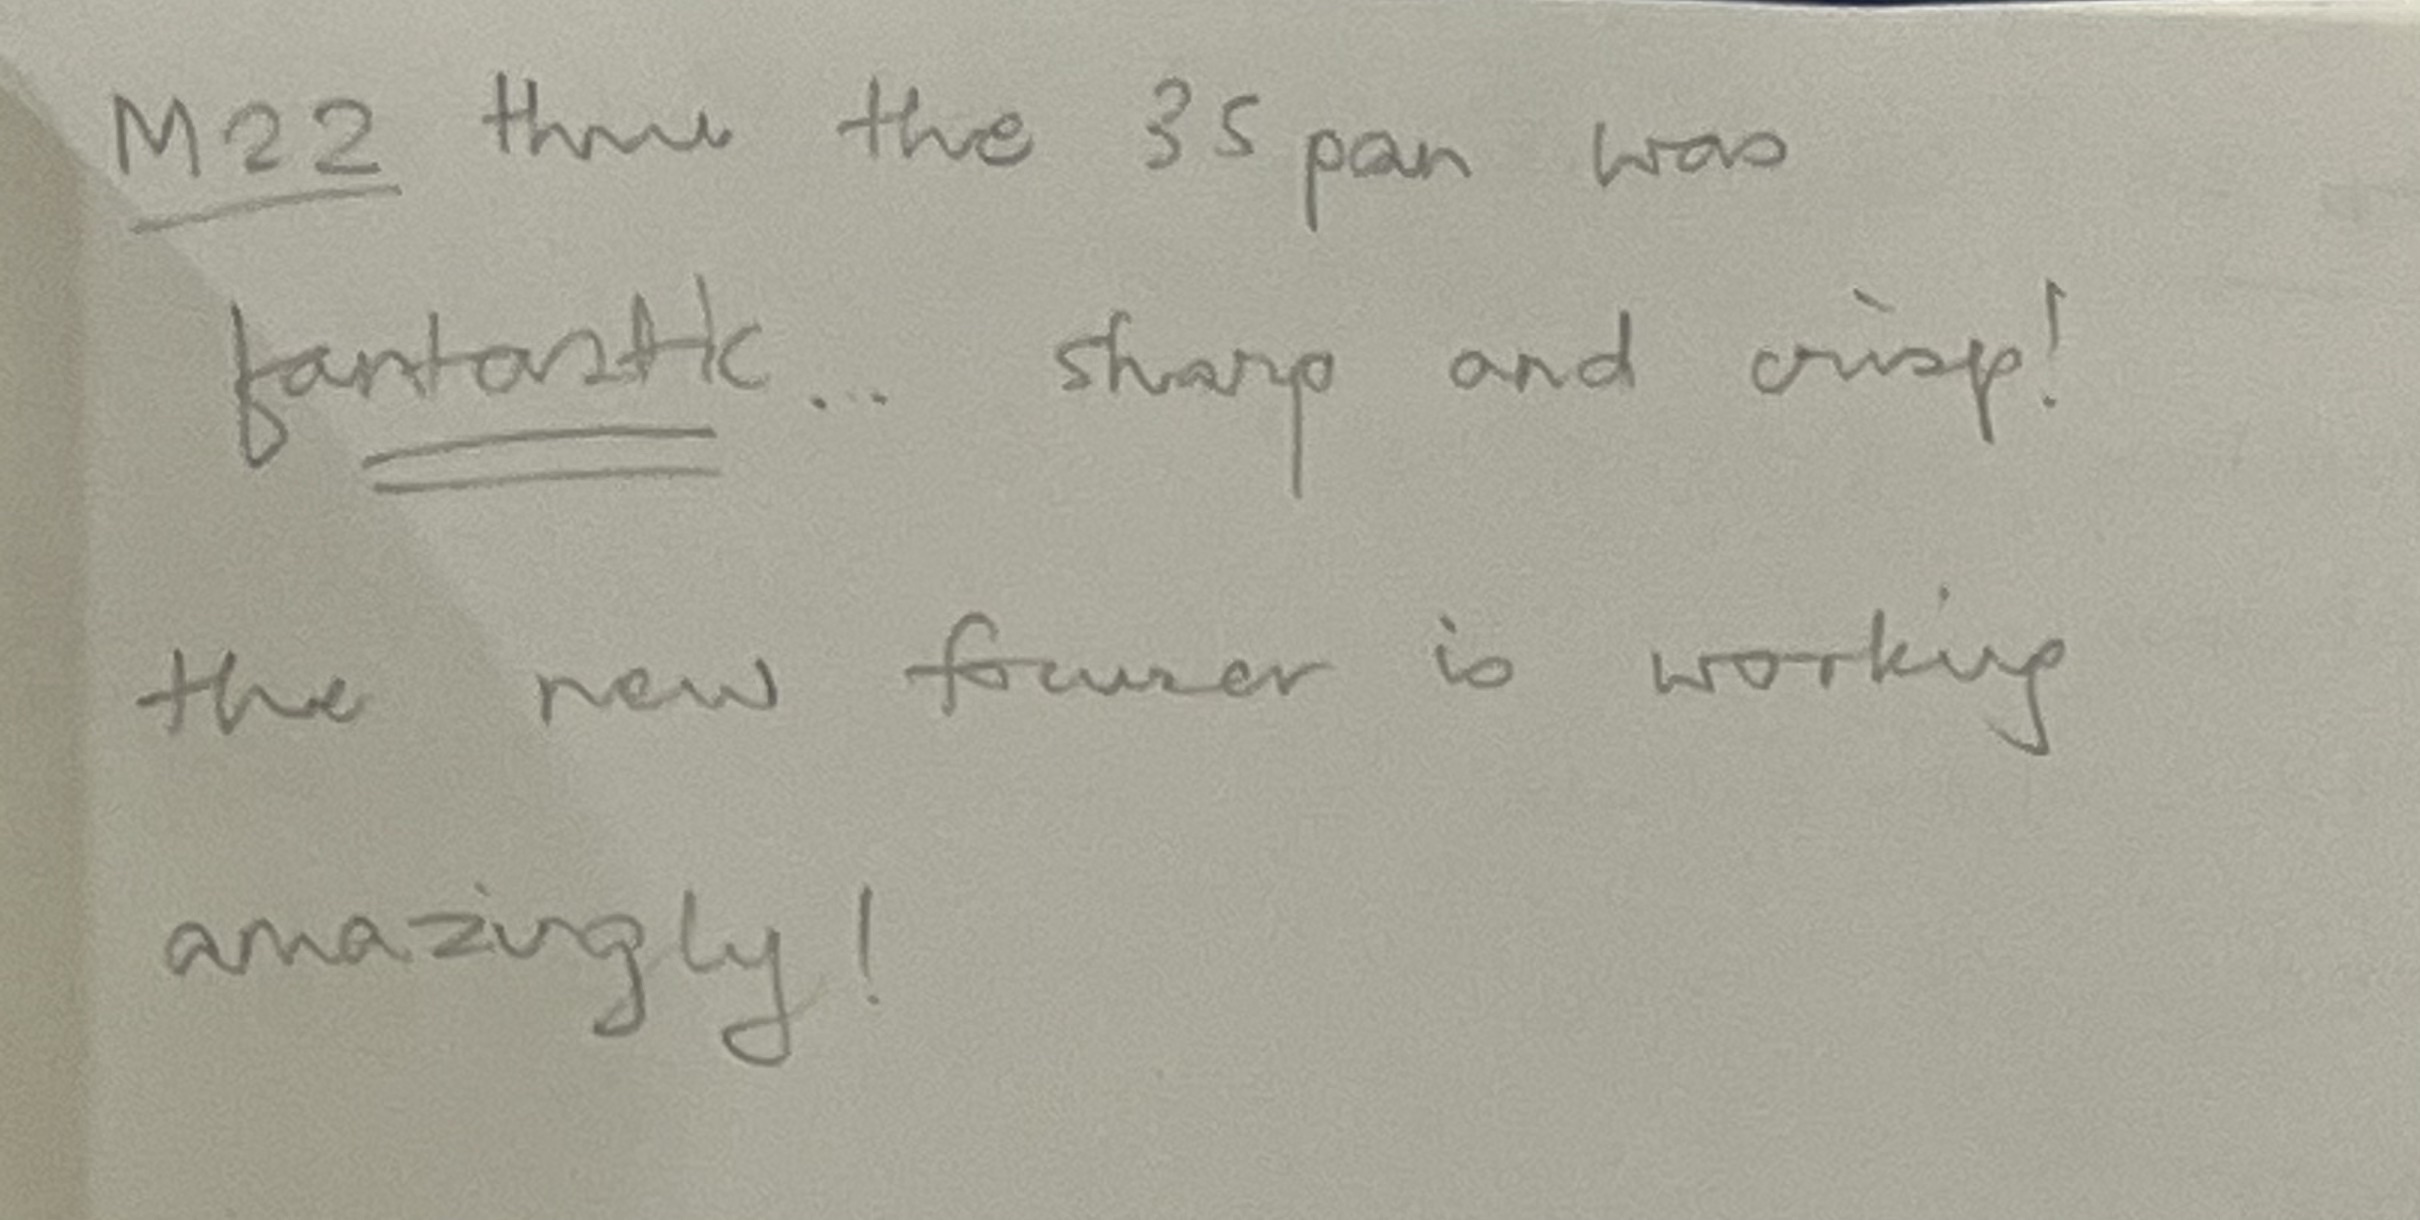 M22 thru the 35 pan was
fantastic... sharp and crisp!
the new focuser is working
amazingly!